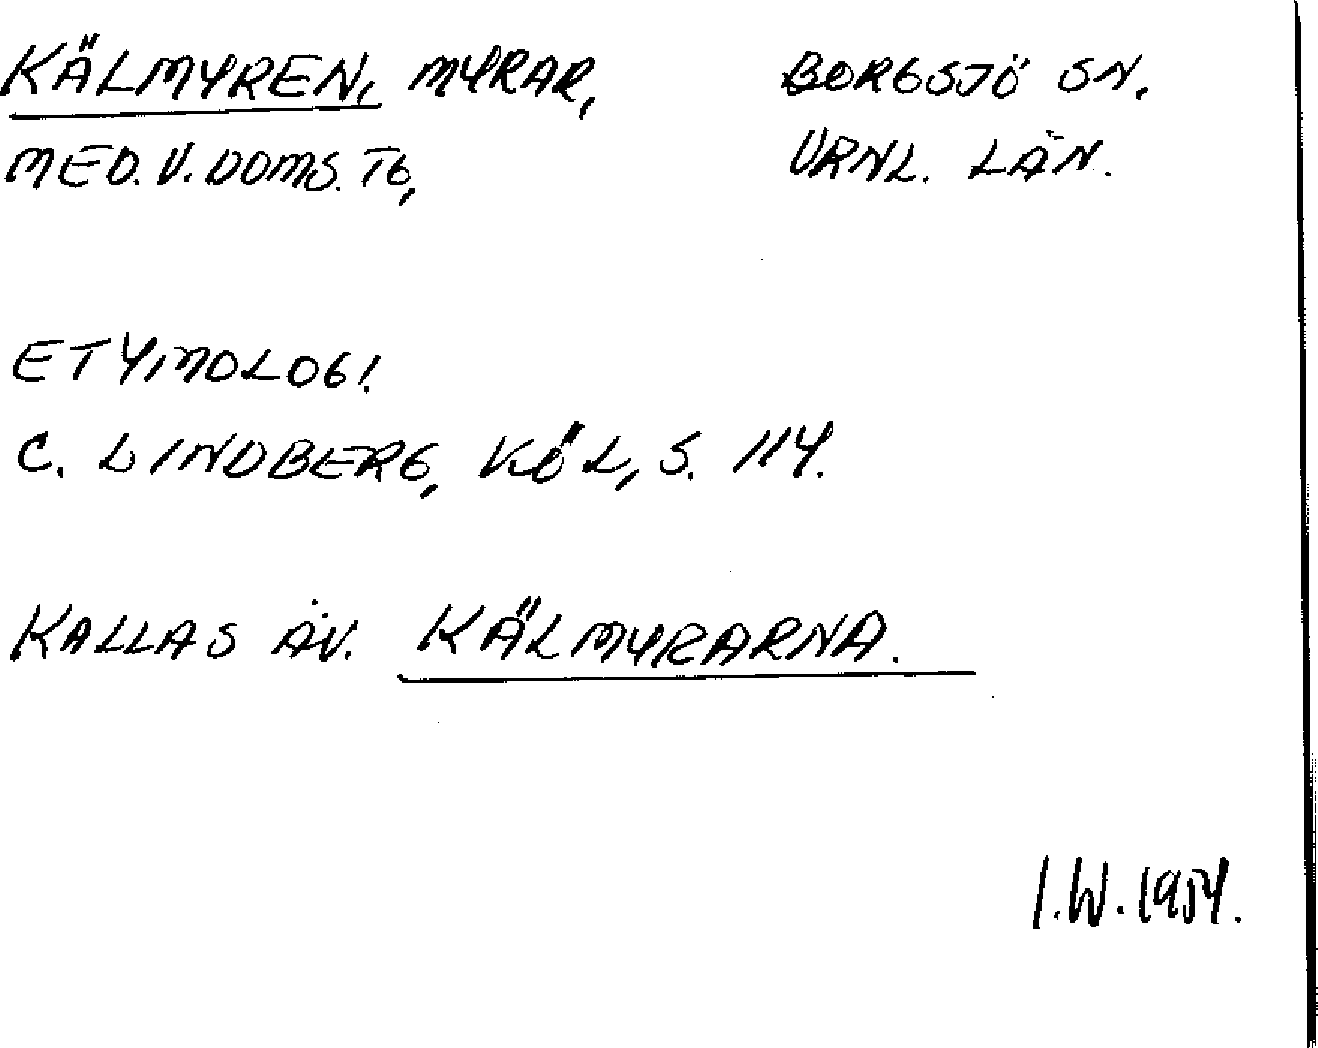 KÄLMYREN, MYRAR, BORGSJÖ SN.
MED. V. DOMS. TG, VRNL. LÄN.
ETYMOLOGI.
C. LINDBERG, KÖL, S. 114.
KALLAS ÄV. KÄLMYRARNA.
I.W. 1954.